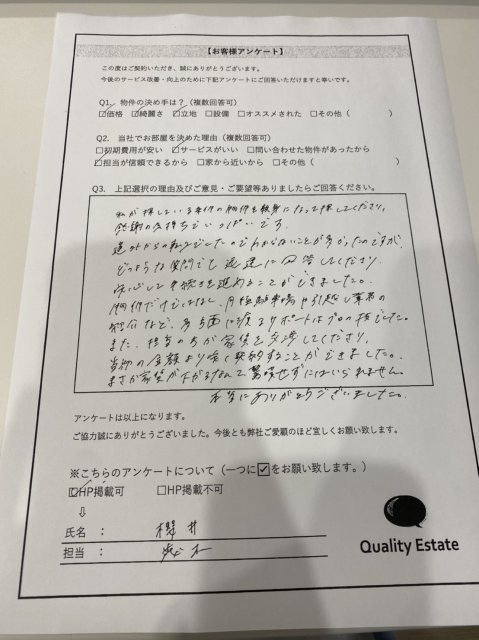 【お客様アンケート】
この度はご契約いただき、誠にありがとうございます。
今後のサービス改善・向上のために下記アンケートにご回答いただけますと幸いです。
Q1. 物件の決め手は？（複数回答可）
☑価格 ☑綺麗さ ☑立地 □設備 □オススメされた □その他（ ）
Q2. 当社でお部屋を決めた理由（複数回答可）
□初期費用が安い ☑サービスがいい □問い合わせた物件があったから
☑担当が信頼できるから □家から近いから □その他（ ）
Q3. 上記選択の理由及びご意見・ご要望等ありましたらご回答ください。
私が探している条件の物件を親身になって探してくださり、
感謝の気持ちでいっぱいです。
遠方からの引越でしたのでわからないことが多かったのですが、
どのような質問でも迅速に回答してくださり、
安心して手続きを進めることができました。
物件だけではなく、月極駐車場や引越し業者の
紹介など、多方面に渡るサポートはプロの技でした。
また、担当の方が家賃を交渉してくださり、
当初の金額より安く契約することができました。
まさか家賃が下がるなんて、驚嘆せずにはいられません。
本当にありがとうございました。
アンケートは以上になります。
ご協力誠にありがとうございました。今後とも弊社ご愛顧のほど宜しくお願い致します。
※こちらのアンケートについて（一つに☑をお願い致します。）
☑HP掲載可 □HP掲載不可
⇩
氏名 ： 櫻井
担当 ：
Quality Estate